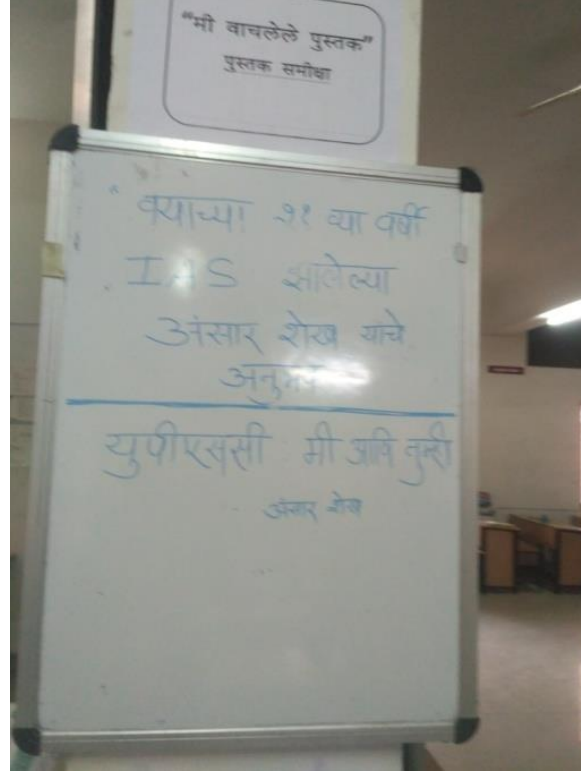 "मी वाचलेले पुस्तक"
पुस्तक समीक्षा
वयाच्या २१ व्या वर्षी
IAS झालेल्या
अंसार शेख यांचे
अनुभव
युपीएससी मी आणि तुम्ही
अंसार शेख